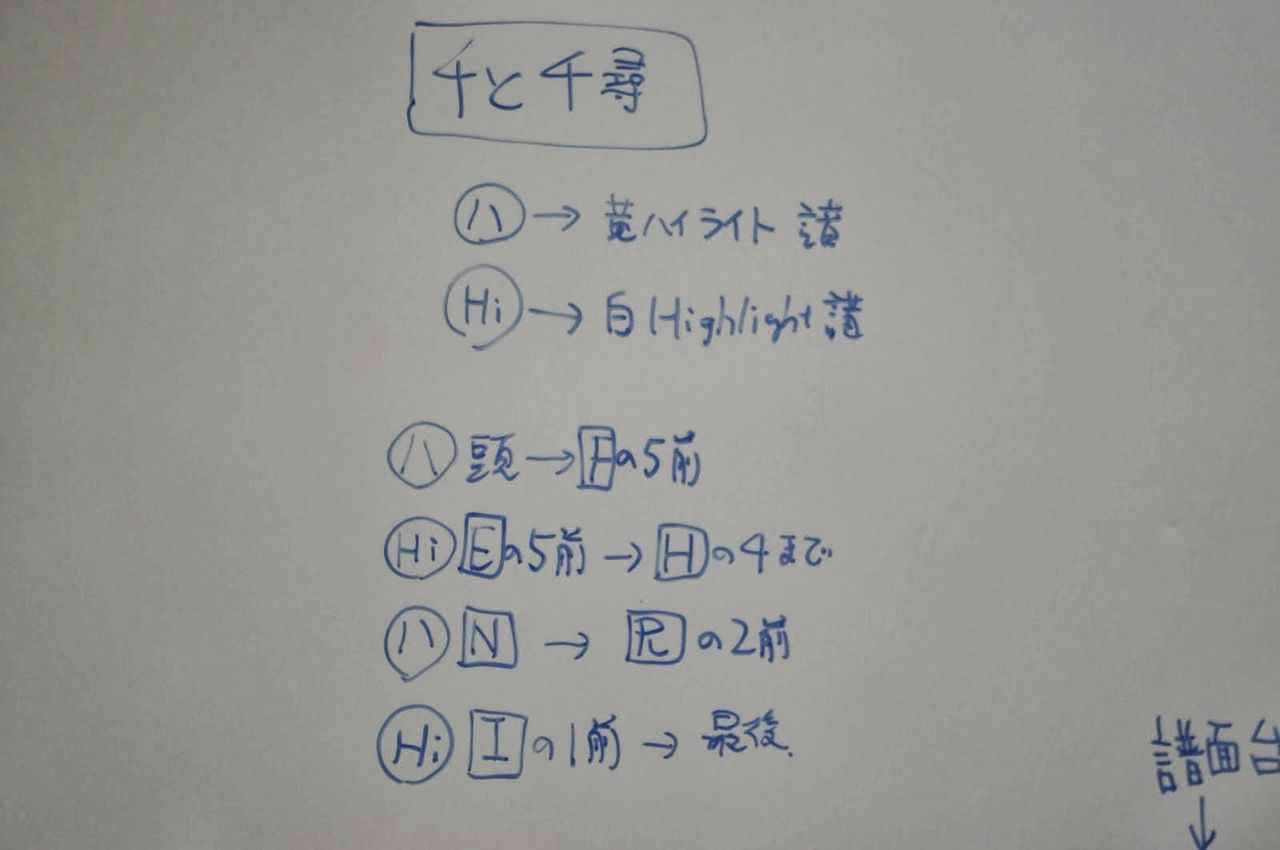 千と千尋
ハ→黄ハイライト譜
Hi→白Highlight譜
ハ頭→Fの5前
Hi Eの5前→Hの4まで
ハ N → Rの2前
Hi Iの1前→最後.
譜面台
↓